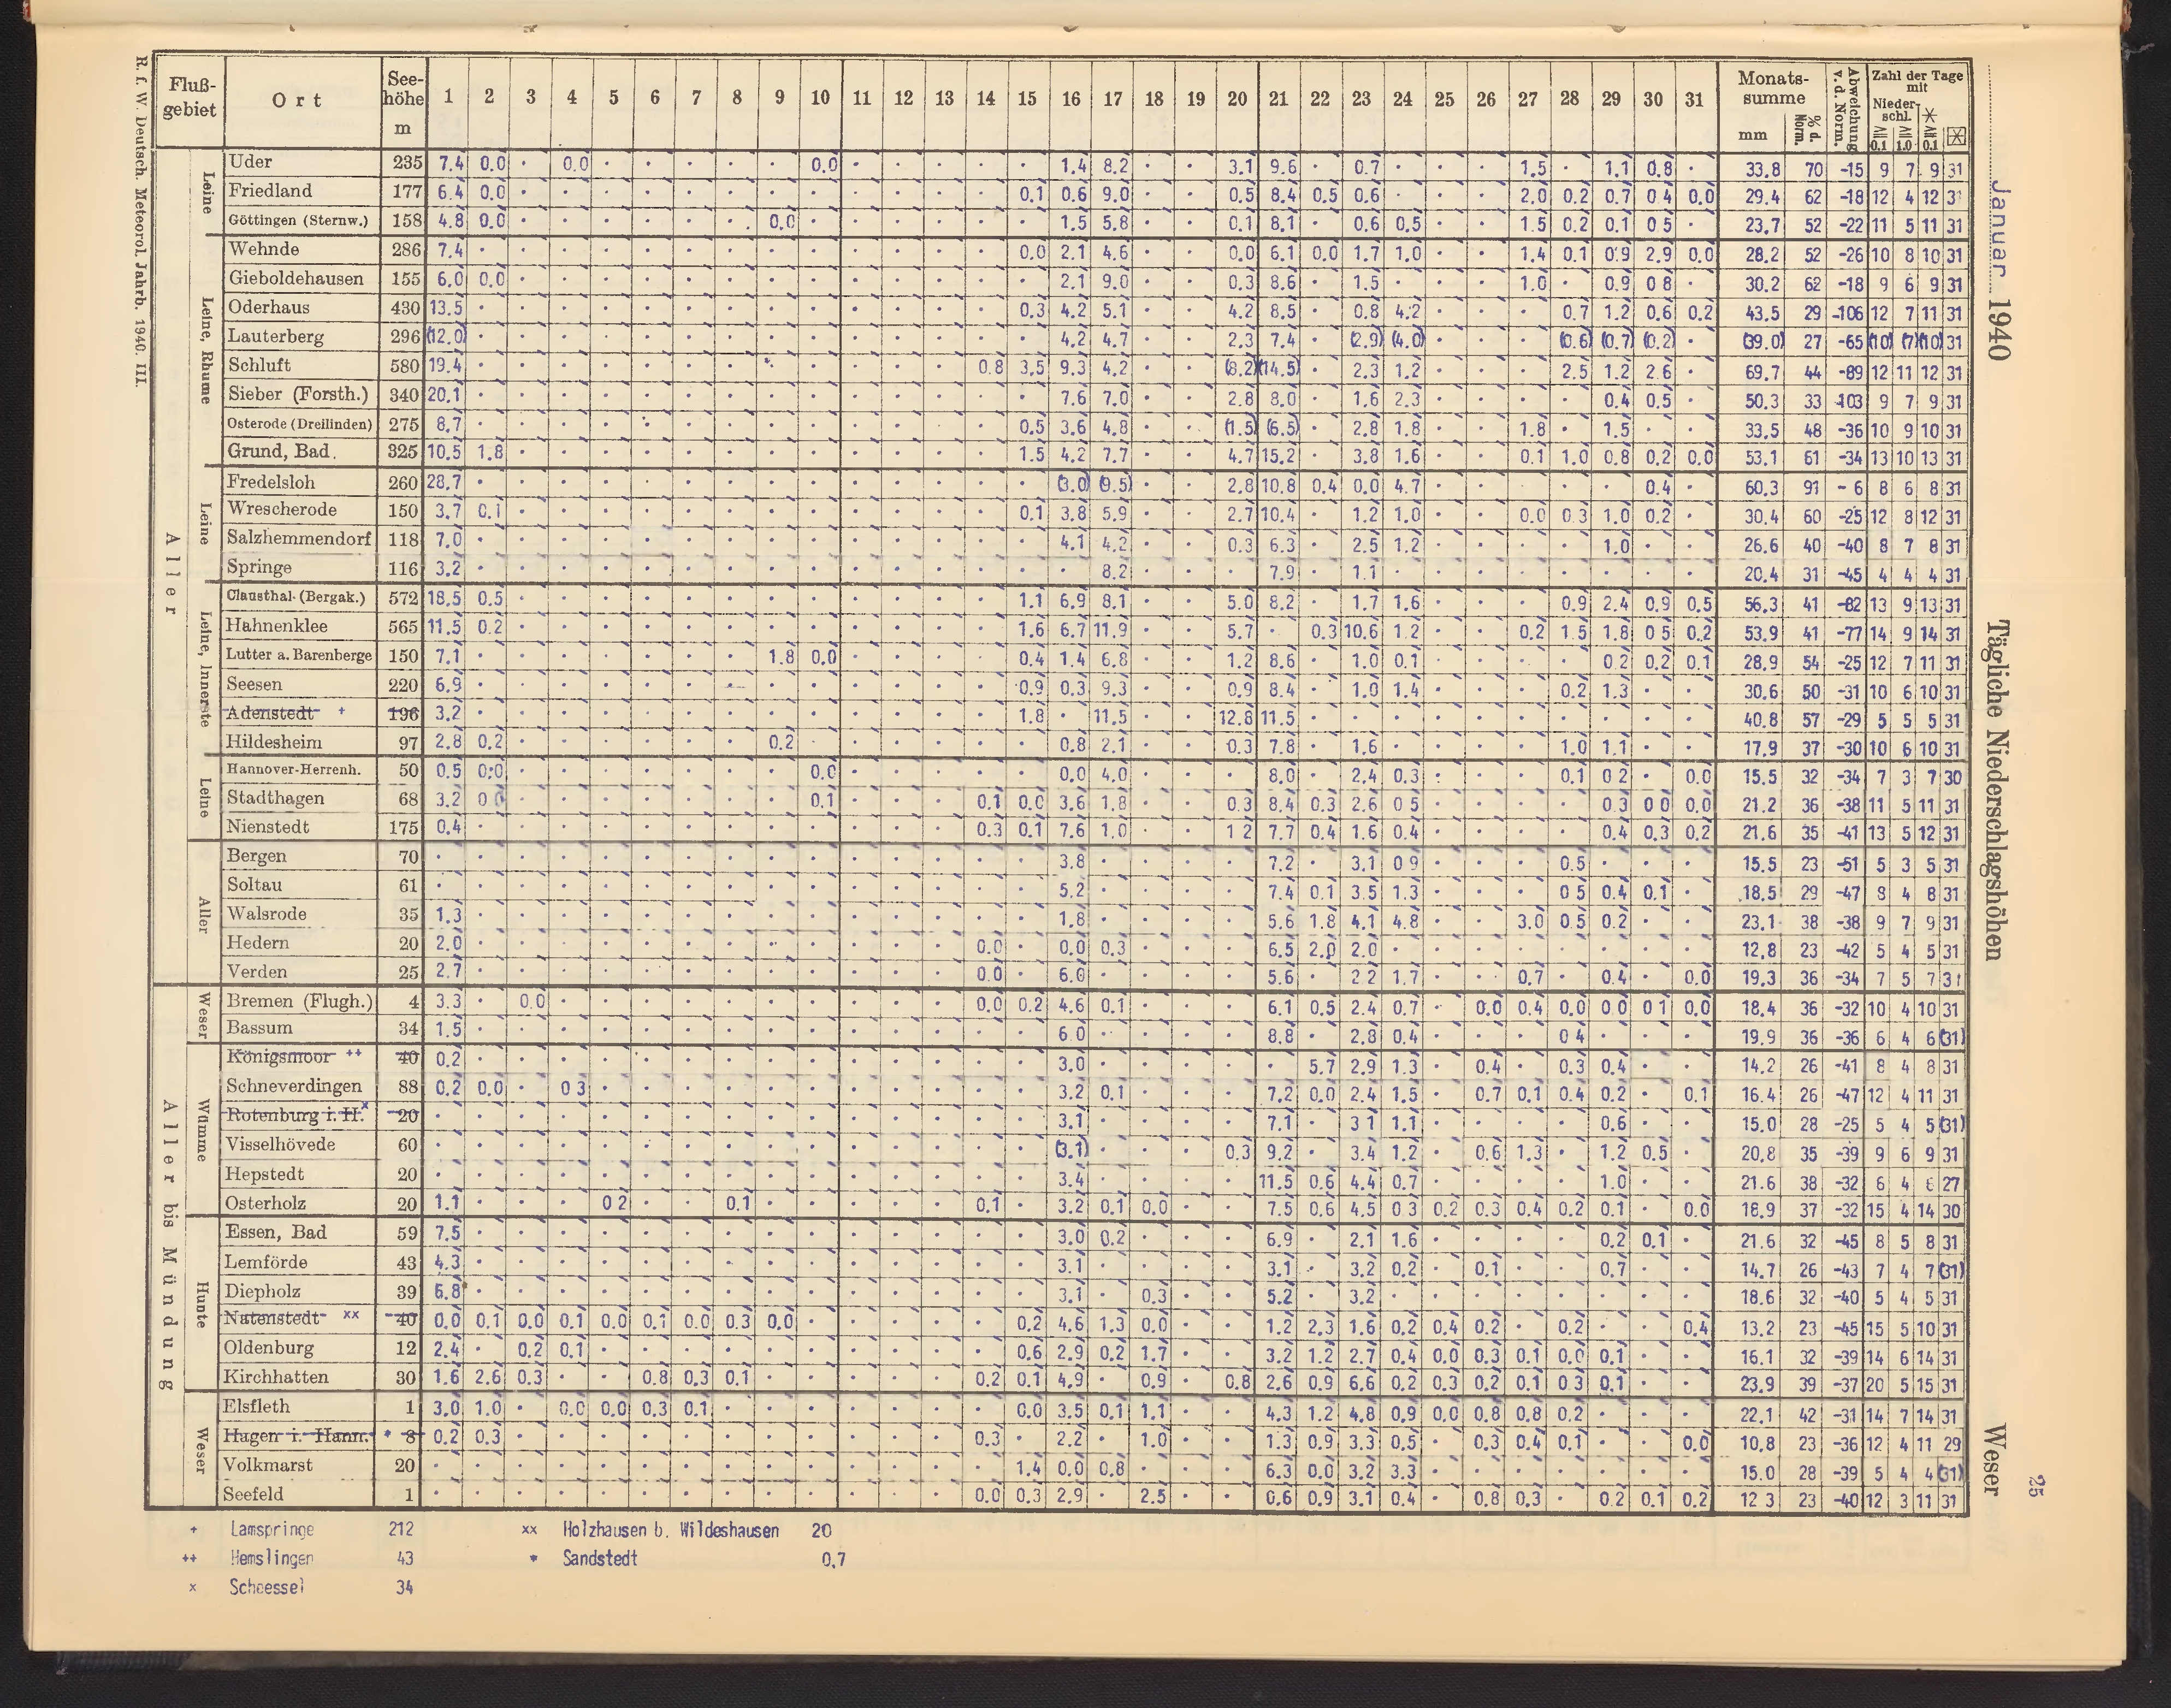 R. f. W. Deutsch. Meteorol. Jahrb. 1940. III.
Januar 1940
Tägliche Niederschlagshöhen
Weser
25
Fluß-gebiet Ort Seehöhe m 1 2 3 4 5 6 7 8 9 10 11 12 13 14 15 16 17 18 19 20 21 22 23 24 25 26 27 28 29 30 31 Monatssumme mm % d. Norm. Abweichung v. d. Norm. Zahl der Tage mit Niederschl. ≧ 0.1 ≧ 1.0 ≧ 0.1
Aller
Leine
Uder 235 7.4 0.0 · 0.0 · · · · · 0.0 · · · · · 1.4 8.2 · · 3.1 9.6 · 0.7 · · · 1.5 · 1.1 0.8 · 33.8 70 -15 9 7 9 31
Friedland 177 6.4 0.0 · · · · · · · · · · · · 0.1 0.6 9.0 · · 0.5 8.4 0.5 0.6 · · · 2.0 0.2 0.7 0 4 0.0 29.4 62 -18 12 4 12 31
Göttingen (Sternw.) 158 4.8 0.0 · · · · · · 0.0 · · · · · · 1.5 5.8 · · 0.1 8.1 · 0.6 0.5 · · 1.5 0.2 0.1 0 5 · 23.7 52 -22 11 5 11 31
Leine, Rhume
Wehnde 286 7.4 · · · · · · · · · · · · · 0.0 2.1 4.6 · · 0.0 6.1 0.0 1.7 1.0 · · 1.4 0.1 0.9 2.9 0.0 28.2 52 -26 10 8 10 31
Gieboldehausen 155 6.0 0.0 · · · · · · · · · · · · · 2.1 9.0 · · 0.3 8.6 · 1.5 · · · 1.0 · 0.9 0 8 · 30.2 62 -18 9 6 9 31
Oderhaus 430 13.5 · · · · · · · · · · · · · 0.3 4.2 5.1 · · 4.2 8.5 · 0.8 4.2 · · · 0.7 1.2 0.6 0.2 43.5 29 -106 12 7 11 31
Lauterberg 296 (12.0) · · · · · · · · · · · · · · 4.2 4.7 · · 2.3 7.4 · (2.9) (4.0) · · · (0.6) (0.7) (0.2) · (39.0) 27 -65 (10) (7) (10) 31
Schluft 580 19.4 · · · · · · · · · · · · 0.8 3.5 9.3 4.2 · · (8.2) (14.5) · 2.3 1.2 · · · 2.5 1.2 2.6 · 69.7 44 -89 12 11 12 31
Sieber (Forsth.) 340 20.1 · · · · · · · · · · · · · · 7.6 7.0 · · 2.8 8.0 · 1.6 2.3 · · · · 0.4 0.5 · 50.3 33 -103 9 7 9 31
Osterode (Dreilinden) 275 8.7 · · · · · · · · · · · · · 0.5 3.6 4.8 · · (1.5) (6.5) · 2.8 1.8 · · 1.8 · 1.5 · · 33.5 48 -36 10 9 10 31
Grund, Bad. 325 10.5 1.8 · · · · · · · · · · · · 1.5 4.2 7.7 · · 4.7 15.2 · 3.8 1.6 · · 0.1 1.0 0.8 0.2 0.0 53.1 61 -34 13 10 13 31
Leine
Fredelsloh 260 28.7 · · · · · · · · · · · · · · (3.0) (9.5) · · 2.8 10.8 0.4 0.0 4.7 · · · · · 0.4 · 60.3 91 - 6 8 6 8 31
Wrescherode 150 3.7 0.1 · · · · · · · · · · · · 0.1 3.8 5.9 · · 2.7 10.4 · 1.2 1.0 · · 0.0 0.3 1.0 0.2 · 30.4 60 -25 12 8 12 31
Salzhemmendorf 118 7.0 · · · · · · · · · · · · · · 4.1 4.2 · · 0.3 6.3 · 2.5 1.2 · · · · 1.0 · · 26.6 40 -40 8 7 8 31
Springe 116 3.2 · · · · · · · · · · · · · · · 8.2 · · · 7.9 · 1.1 · · · · · · · · 20.4 31 -45 4 4 4 31
Leine, Innerste
Clausthal (Bergak.) 572 18.5 0.5 · · · · · · · · · · · · 1.1 6.9 8.1 · · 5.0 8.2 · 1.7 1.6 · · · 0.9 2.4 0.9 0.5 56.3 41 -82 13 9 13 31
Hahnenklee 565 11.5 0.2 · · · · · · · · · · · · 1.6 6.7 11.9 · · 5.7 · 0.3 10.6 1.2 · · 0.2 1.5 1.8 0 5 0.2 53.9 41 -77 14 9 14 31
Lutter a. Barenberge 150 7.1 · · · · · · · 1.8 0.0 · · · · 0.4 1.4 6.8 · · 1.2 8.6 · 1.0 0.1 · · · · 0.2 0.2 0.1 28.9 54 -25 12 7 11 31
Seesen 220 6.9 · · · · · · · · · · · · · 0.9 0.3 9.3 · · 0.9 8.4 · 1.0 1.4 · · · 0.2 1.3 · · 30.6 50 -31 10 6 10 31
Adenstedt + 196 3.2 · · · · · · · · · · · · · 1.8 · 11.5 · · 12.8 11.5 · · · · · · · · · · 40.8 57 -29 5 5 5 31
Hildesheim 97 2.8 0.2 · · · · · · 0.2 · · · · · · 0.8 2.1 · · 0.3 7.8 · 1.6 · · · · 1.0 1.1 · · 17.9 37 -30 10 6 10 31
Leine
Hannover-Herrenh. 50 0.5 0.0 · · · · · · · 0.0 · · · · · 0.0 4.0 · · · 8.0 · 2.4 0.3 · · · 0.1 0 2 · 0.0 15.5 32 -34 7 3 7 30
Stadthagen 68 3.2 0 0 · · · · · · · 0.1 · · · 0.1 0.0 3.6 1.8 · · 0.3 8.4 0.3 2.6 0 5 · · · · 0.3 0 0 0.0 21.2 36 -38 11 5 11 31
Nienstedt 175 0.4 · · · · · · · · · · · · 0.3 0.1 7.6 1.0 · · 1 2 7.7 0.4 1.6 0.4 · · · · 0.4 0.3 0.2 21.6 35 -41 13 5 12 31
Aller
Bergen 70 · · · · · · · · · · · · · · · 3.8 · · · · 7.2 · 3.1 0 9 · · · 0.5 · · · 15.5 23 -51 5 3 5 31
Soltau 61 · · · · · · · · · · · · · · · 5.2 · · · · 7.4 0.1 3.5 1.3 · · · 0 5 0.4 0.1 · 18.5 29 -47 8 4 8 31
Walsrode 35 1.3 · · · · · · · · · · · · · · 1.8 · · · · 5.6 1.8 4.1 4.8 · · 3.0 0.5 0.2 · · 23.1 38 -38 9 7 9 31
Hedern 20 2.0 · · · · · · · · · · · · 0.0 · 0.0 0.3 · · · 6.5 2.0 2.0 · · · · · · · · 12.8 23 -42 5 4 5 31
Verden 25 2.7 · · · · · · · · · · · · 0.0 · 6.0 · · · · 5.6 · 2 2 1.7 · · 0.7 · 0.4 · 0.0 19.3 36 -34 7 5 7 31
Aller bis Mündung
Weser
Bremen (Flugh.) 4 3.3 · 0.0 · · · · · · · · · · 0.0 0.2 4.6 0.1 · · · 6.1 0.5 2.4 0.7 · 0.0 0.4 0.0 0 0 0 1 0.0 18.4 36 -32 10 4 10 31
Bassum 34 1.5 · · · · · · · · · · · · · · 6 0 · · · · 8.8 · 2.8 0.4 · · · 0 4 · · · 19.9 36 -36 6 4 6 (31)
Wümme
Königsmoor ++ 40 0.2 · · · · · · · · · · · · · · 3.0 · · · · · 5.7 2.9 1.3 · 0.4 · 0.3 0.4 · · 14.2 26 -41 8 4 8 31
Schneverdingen 88 0.2 0.0 · 0 3 · · · · · · · · · · · 3.2 0.1 · · · 7.2 0.0 2.4 1.5 · 0.7 0.1 0.4 0.2 · 0.1 16.4 26 -47 12 4 11 31
Rotenburg i. H. x 20 · · · · · · · · · · · · · · · 3.1 · · · · 7.1 · 3 1 1.1 · · · · 0.6 · · 15.0 28 -25 5 4 5 (31)
Visselhövede 60 · · · · · · · · · · · · · · · (3.1) · · · 0.3 9.2 · 3.4 1.2 · 0.6 1.3 · 1.2 0.5 · 20.8 35 -39 9 6 9 31
Hepstedt 20 · · · · · · · · · · · · · · · 3.4 · · · · 11.5 0.6 4.4 0.7 · · · · 1.0 · · 21.6 38 -32 6 4 6 27
Osterholz 20 1.1 · · · 0 2 · · 0.1 · · · · · 0.1 · 3.2 0.1 0.0 · · 7.5 0.6 4.5 0 3 0.2 0.3 0.4 0.2 0.1 · 0.0 18.9 37 -32 15 4 14 30
Hunte
Essen, Bad 59 7.5 · · · · · · · · · · · · · · 3.0 0.2 · · · 6.9 · 2.1 1.6 · · · · 0.2 0.1 · 21.6 32 -45 8 5 8 31
Lemförde 43 4.3 · · · · · · · · · · · · · · 3.1 · · · · 3.1 · 3.2 0.2 · 0.1 · · 0.7 · · 14.7 26 -43 7 4 7 (31)
Diepholz 39 6.8 · · · · · · · · · · · · · · 3.1 · 0.3 · · 5.2 · 3.2 · · · · · · · · 18.6 32 -40 5 4 5 31
Natenstedt xx 40 0.0 0.1 0.0 0.1 0.0 0.1 0.0 0.3 0.0 · · · · · 0.2 4.6 1.3 0.0 · · 1.2 2.3 1.6 0.2 0.4 0.2 · 0.2 · · 0.4 13.2 23 -45 15 5 10 31
Oldenburg 12 2.4 · 0.2 0.1 · · · · · · · · · · 0.6 2.9 0.2 1.7 · · 3.2 1.2 2.7 0.4 0.0 0.3 0.1 0.0 0.1 · · 16.1 32 -39 14 6 14 31
Kirchhatten 30 1.6 2.6 0.3 · · 0.8 0.3 0.1 · · · · · 0.2 0.1 4.9 · 0.9 · 0.8 2.6 0.9 6.6 0.2 0.3 0.2 0.1 0.3 0.1 · · 23.9 39 -37 20 5 15 31
Weser
Elsfleth 1 3.0 1.0 · 0.0 0.0 0.3 0.1 · · · · · · · 0.0 3.5 0.1 1.1 · · 4.3 1.2 4.8 0.9 0.0 0.8 0.8 0.2 · · · 22.1 42 -31 14 7 14 31
Hagen i. Hann. * 8 0.2 0.3 · · · · · · · · · · · 0.3 · 2.2 · 1.0 · · 1.3 0.9 3.3 0.5 · 0.3 0.4 0.1 · · 0.0 10.8 23 -36 12 4 11 29
Volkmarst 20 · · · · · · · · · · · · · · 1.4 0.0 0.8 · · · 6.3 0.0 3.2 3.3 · · · · · · · 15.0 28 -39 5 4 4 (31)
Seefeld 1 · · · · · · · · · · · · · 0.0 0.3 2.9 · 2.5 · · 0.6 0.9 3.1 0.4 · 0.8 0.3 · 0.2 0.1 0.2 12 3 23 -40 12 3 11 31
+ Lamspringe 212 xx Holzhausen b. Wildeshausen 20
++ Hemslingen 43 * Sandstedt 0,7
x Scheessel 34